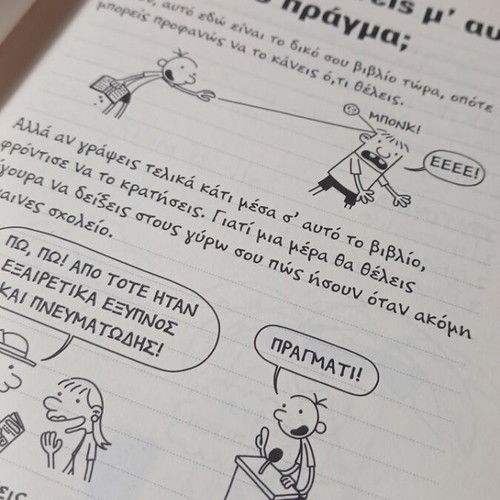 μ' αυ
πράγμα;
αυτό εδώ είναι το δικό σου βιβλίο τώρα, οπότε
μπορείς προφανώς να το κάνεις ό,τι θέλεις.
ΜΠΟΝΚ!
ΕΕΕΕ!
Αλλά αν γράψεις τελικά κάτι μέσα σ' αυτό το βιβλίο,
φρόντισε να το κρατήσεις. Γιατί μια μέρα θα θέλεις
να δείξεις στους γύρω σου πώς ήσουν όταν ακόμη
σχολείο.
ΠΩ, ΠΩ! ΑΠΟ ΤΟΤΕ ΗΤΑΝ
ΕΞΑΙΡΕΤΙΚΑ ΕΞΥΠΝΟΣ
ΚΑΙ ΠΝΕΥΜΑΤΩΔΗΣ!
ΠΡΑΓΜΑΤΙ!